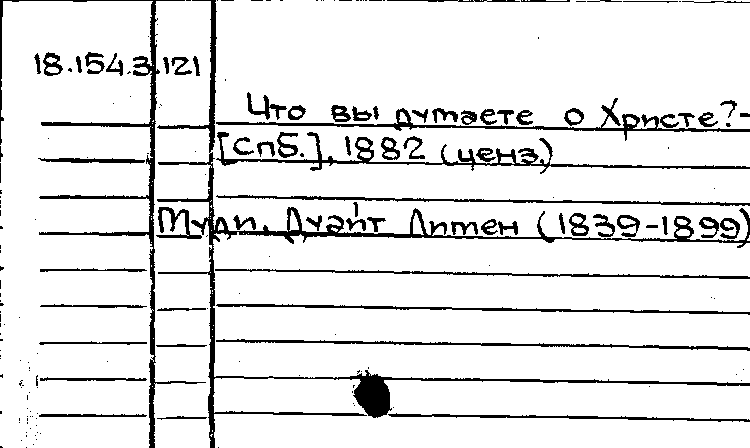 18.154.3.121
Что вы думаете о Христе?-
[Спб.], 1882 (ценз.)
Муди, Дуайт Литен (1839-1899)